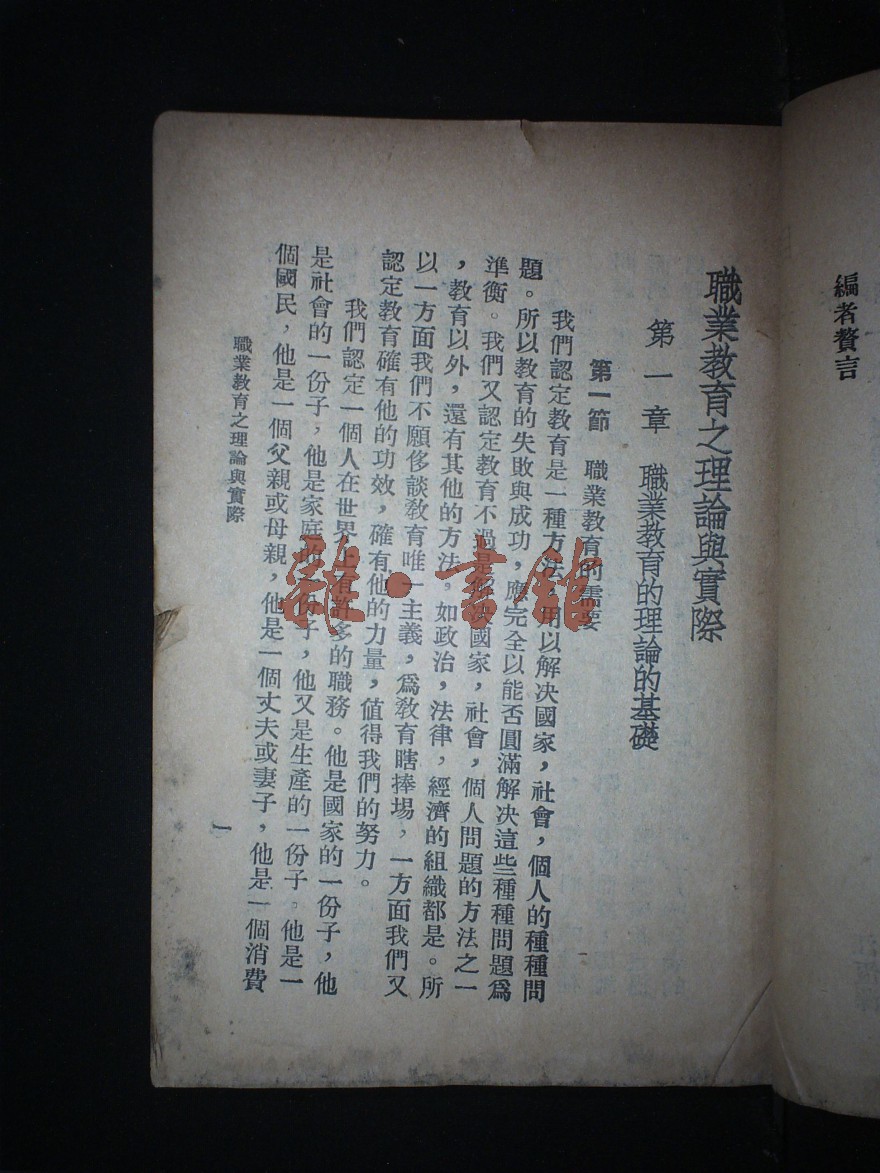 編者贅言
職業教育之理論與實際
第一章 職業教育的理論的基礎
第一節 職業教育的需要
我們認定教育是一種方法，用以解決國家，社會，個人的種種問
題。所以教育的失敗與成功，應完全以能否圓滿解決這些種種問題爲
準衡。我們又認定教育不過是解決國家，社會，個人問題的方法之一
，教育以外，還有其他的方法，如政治，法律，經濟的組織都是。所
以一方面我們不願侈談教育唯一主義，爲教育瞎捧場，一方面我們又
認定教育確有他的功效，確有他的力量，值得我們的努力。
我們認定一個人在世界上有許多的職務。他是國家的一份子，他
是社會的一份子，他是家庭的一份子，他又是生產的一份子。他是一
個國民，他是一個父親或母親，他是一個丈夫或妻子，他是一個消費
職業教育之理論與實際
一
雜·書館